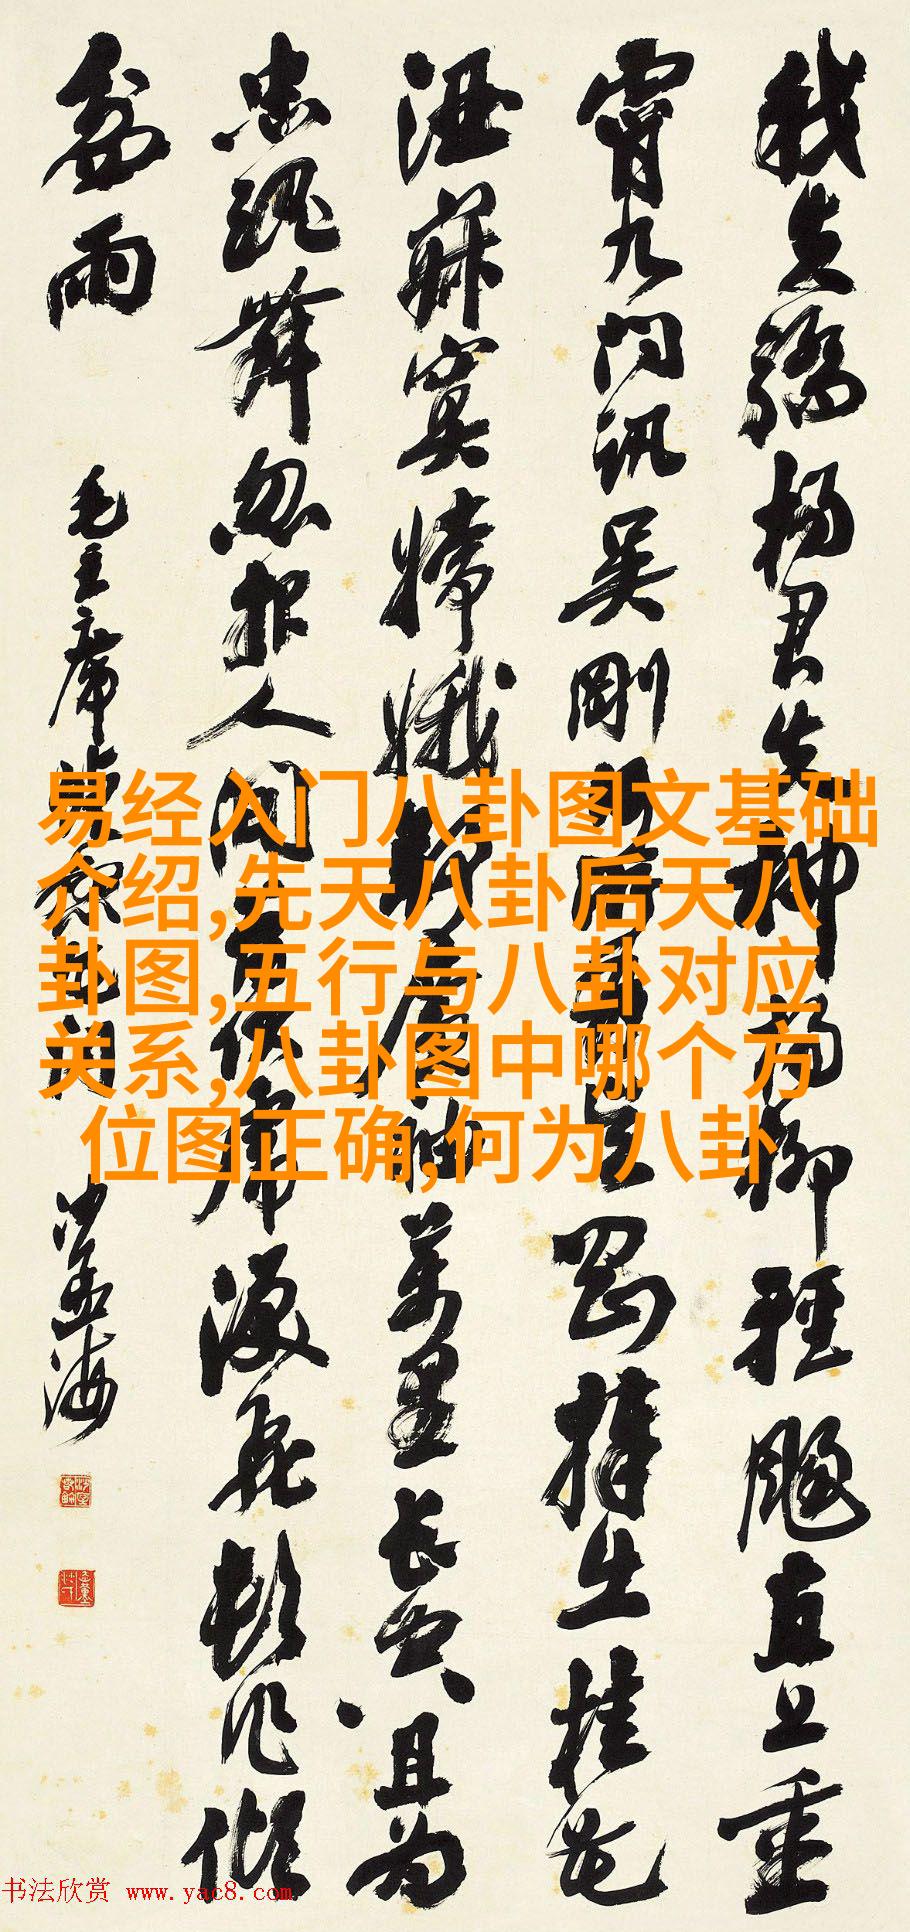 我失驕杨君失柳杨柳轻飏直上重
霄九问讯吴剛何所有吴刚捧出桂花
酒寂寞嫦娥舒广袖万里长空且为
忠魂舞忽报人间曾伏虎泪飞顿作倾
盆雨
毛主席
沙孟海
易经入门八卦图文基础
介绍,先天八卦后天八
卦图,五行与八卦对应
关系,八卦图中哪个方
位图正确,何为八卦
书法欣赏 www.yac8.com